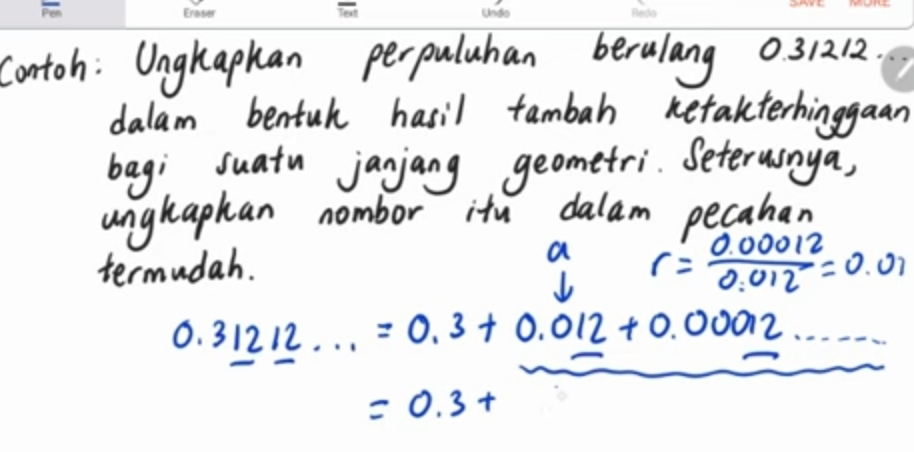 Pen Eraser Text Undo Redo SAVE MORE
Contoh: Ungkapkan perpuluhan berulang 0.31212...
dalam bentuk hasil tambah ketakterhinggaan
bagi suatu janjang geometri. Seterusnya,
ungkapkan nombor itu dalam pecahan
termudah.
a
↓
r = 0.00012/0.012 = 0.01
0.31212... = 0.3 + 0.012 + 0.00012.......
= 0.3 +